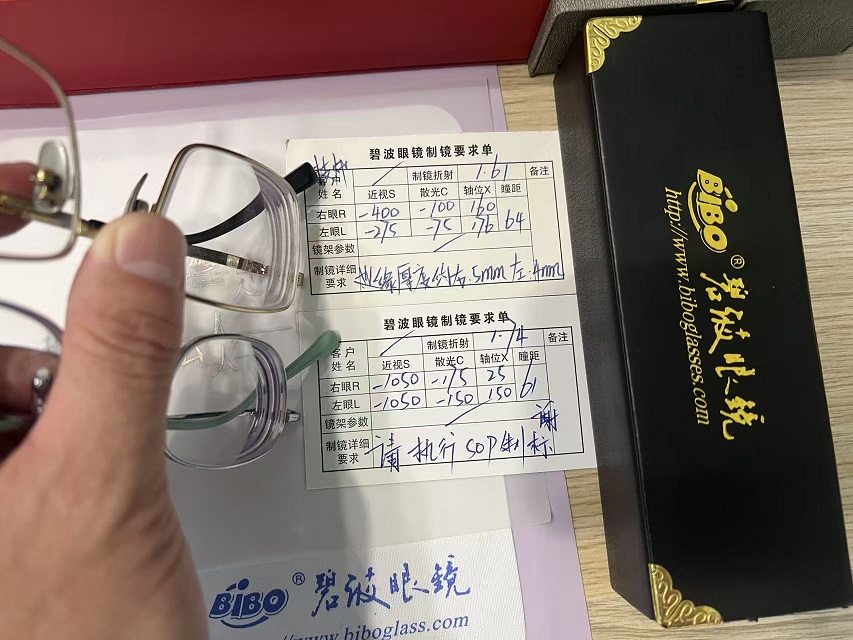 碧波眼镜制镜要求单
客户 制镜折射 1.61 备注
姓名 近视S 散光C 轴位X 瞳距
右眼R -400 -100 160 64
左眼L -275 -75 176
镜架参数
制镜详细 边缘厚度约右.5mm左.4mm
要求
碧波眼镜制镜要求单
客户 制镜折射 1.74 备注
姓名 近视S 散光C 轴位X 瞳距
右眼R -1050 -175 25 61
左眼L -1050 -150 150
镜架参数 谢
制镜详细 请执行SOP制标
要求
BiBO® 碧波眼镜
http://www.biboglasses.com
BiBO® 碧波眼镜
//www.biboglass.com